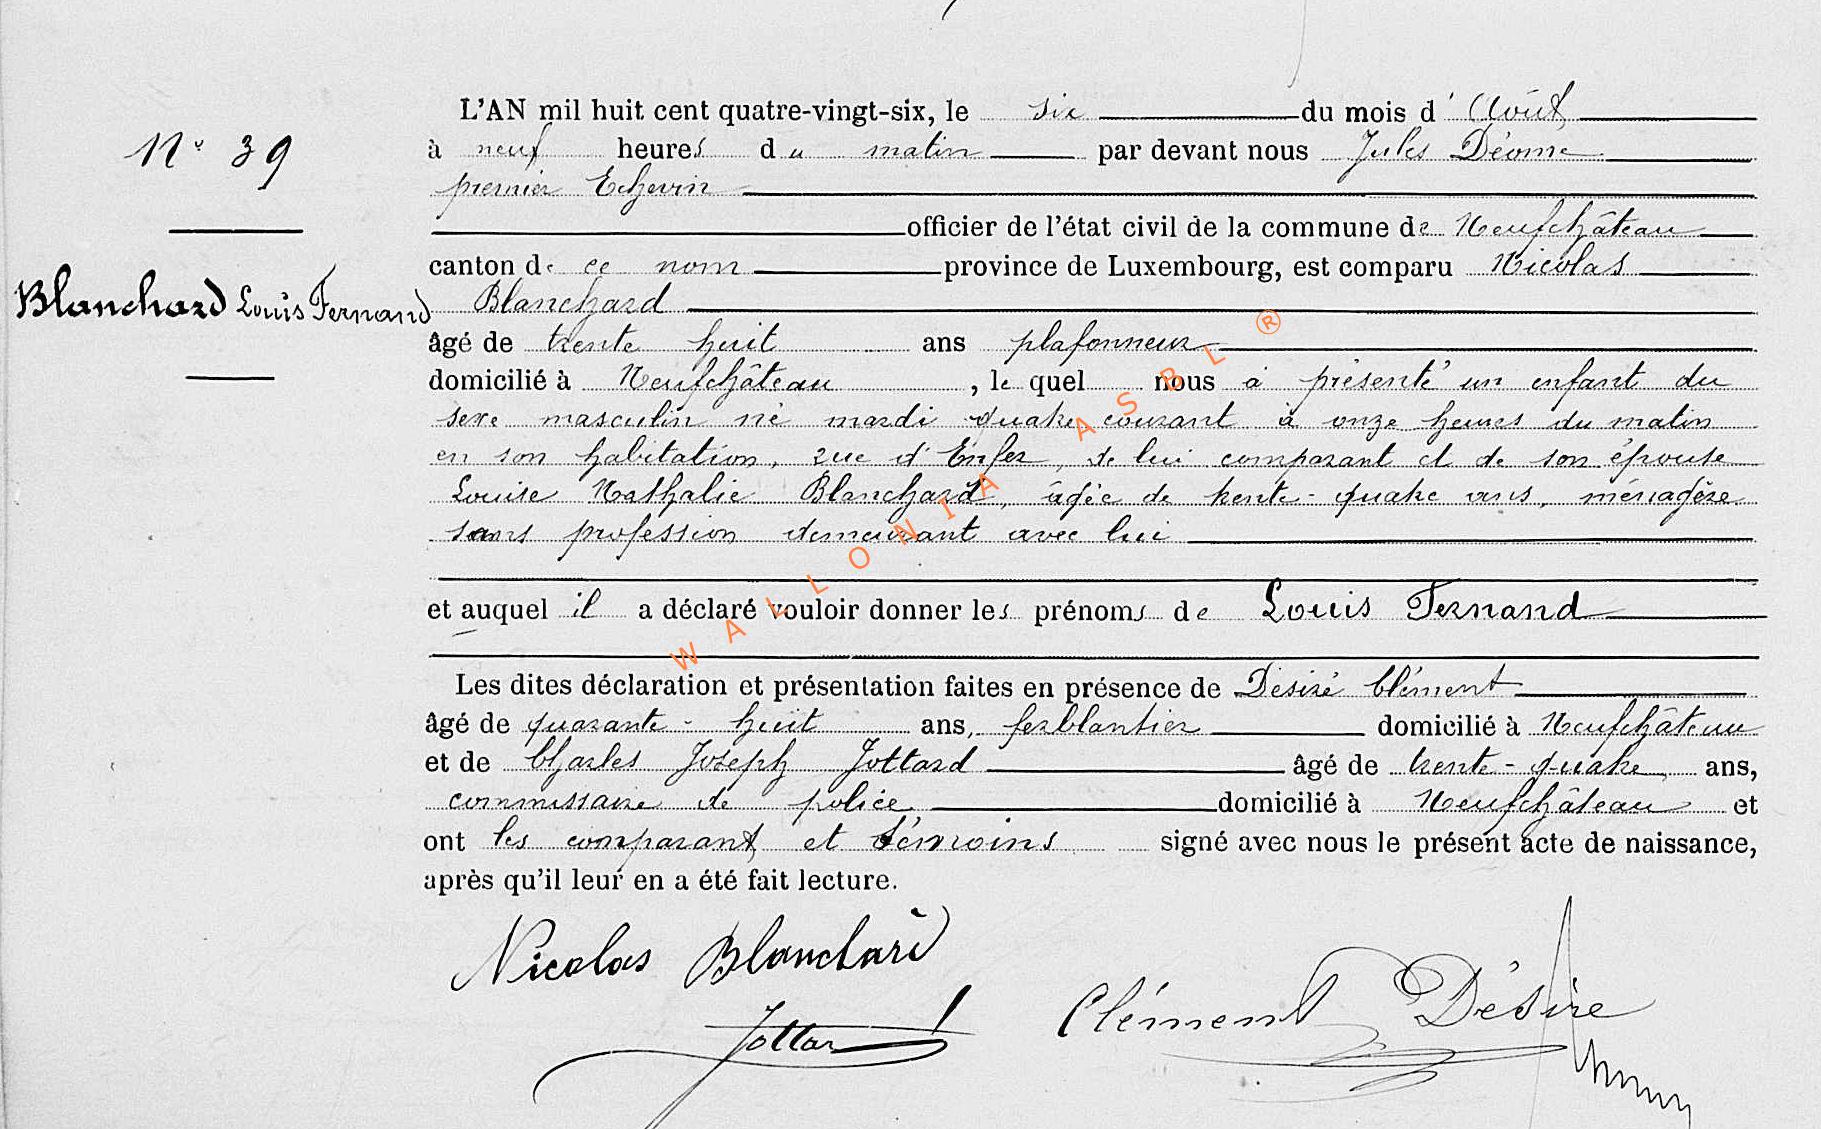 L'AN mil huit cent quatre-vingt-six, le six du mois d'Août
N° 39
à neuf heures du matin par devant nous Jules Déome
premier Echevin
officier de l'état civil de la commune de Neufchâteau
canton de ce nom province de Luxembourg, est comparu Nicolas
Blanchard Louis Fernand
Blanchard
âgé de trente huit ans plafonneur
domicilié à Neufchâteau, lequel nous a présenté un enfant du
sexe masculin né mardi quatre courant à onze heures du matin
en son habitation, rue d'Enfer, de lui comparant et de son épouse
Louise Nathalie Blanchard, âgée de trente-quatre ans, ménagère
sans profession demeurant avec lui
et auquel il a déclaré vouloir donner les prénoms de Louis Fernand
Les dites déclaration et présentation faites en présence de Désiré Clément
âgé de quarante-huit ans, ferblantier domicilié à Neufchâteau
et de Charles Joseph Jottard âgé de trente-quatre ans,
commissaire de police domicilié à Neufchâteau et
ont les comparant et témoins signé avec nous le présent acte de naissance,
après qu'il leur en a été fait lecture.
Nicolas Blanchard
Clément Désiré
Jottard
WALLONIA ASBL ®